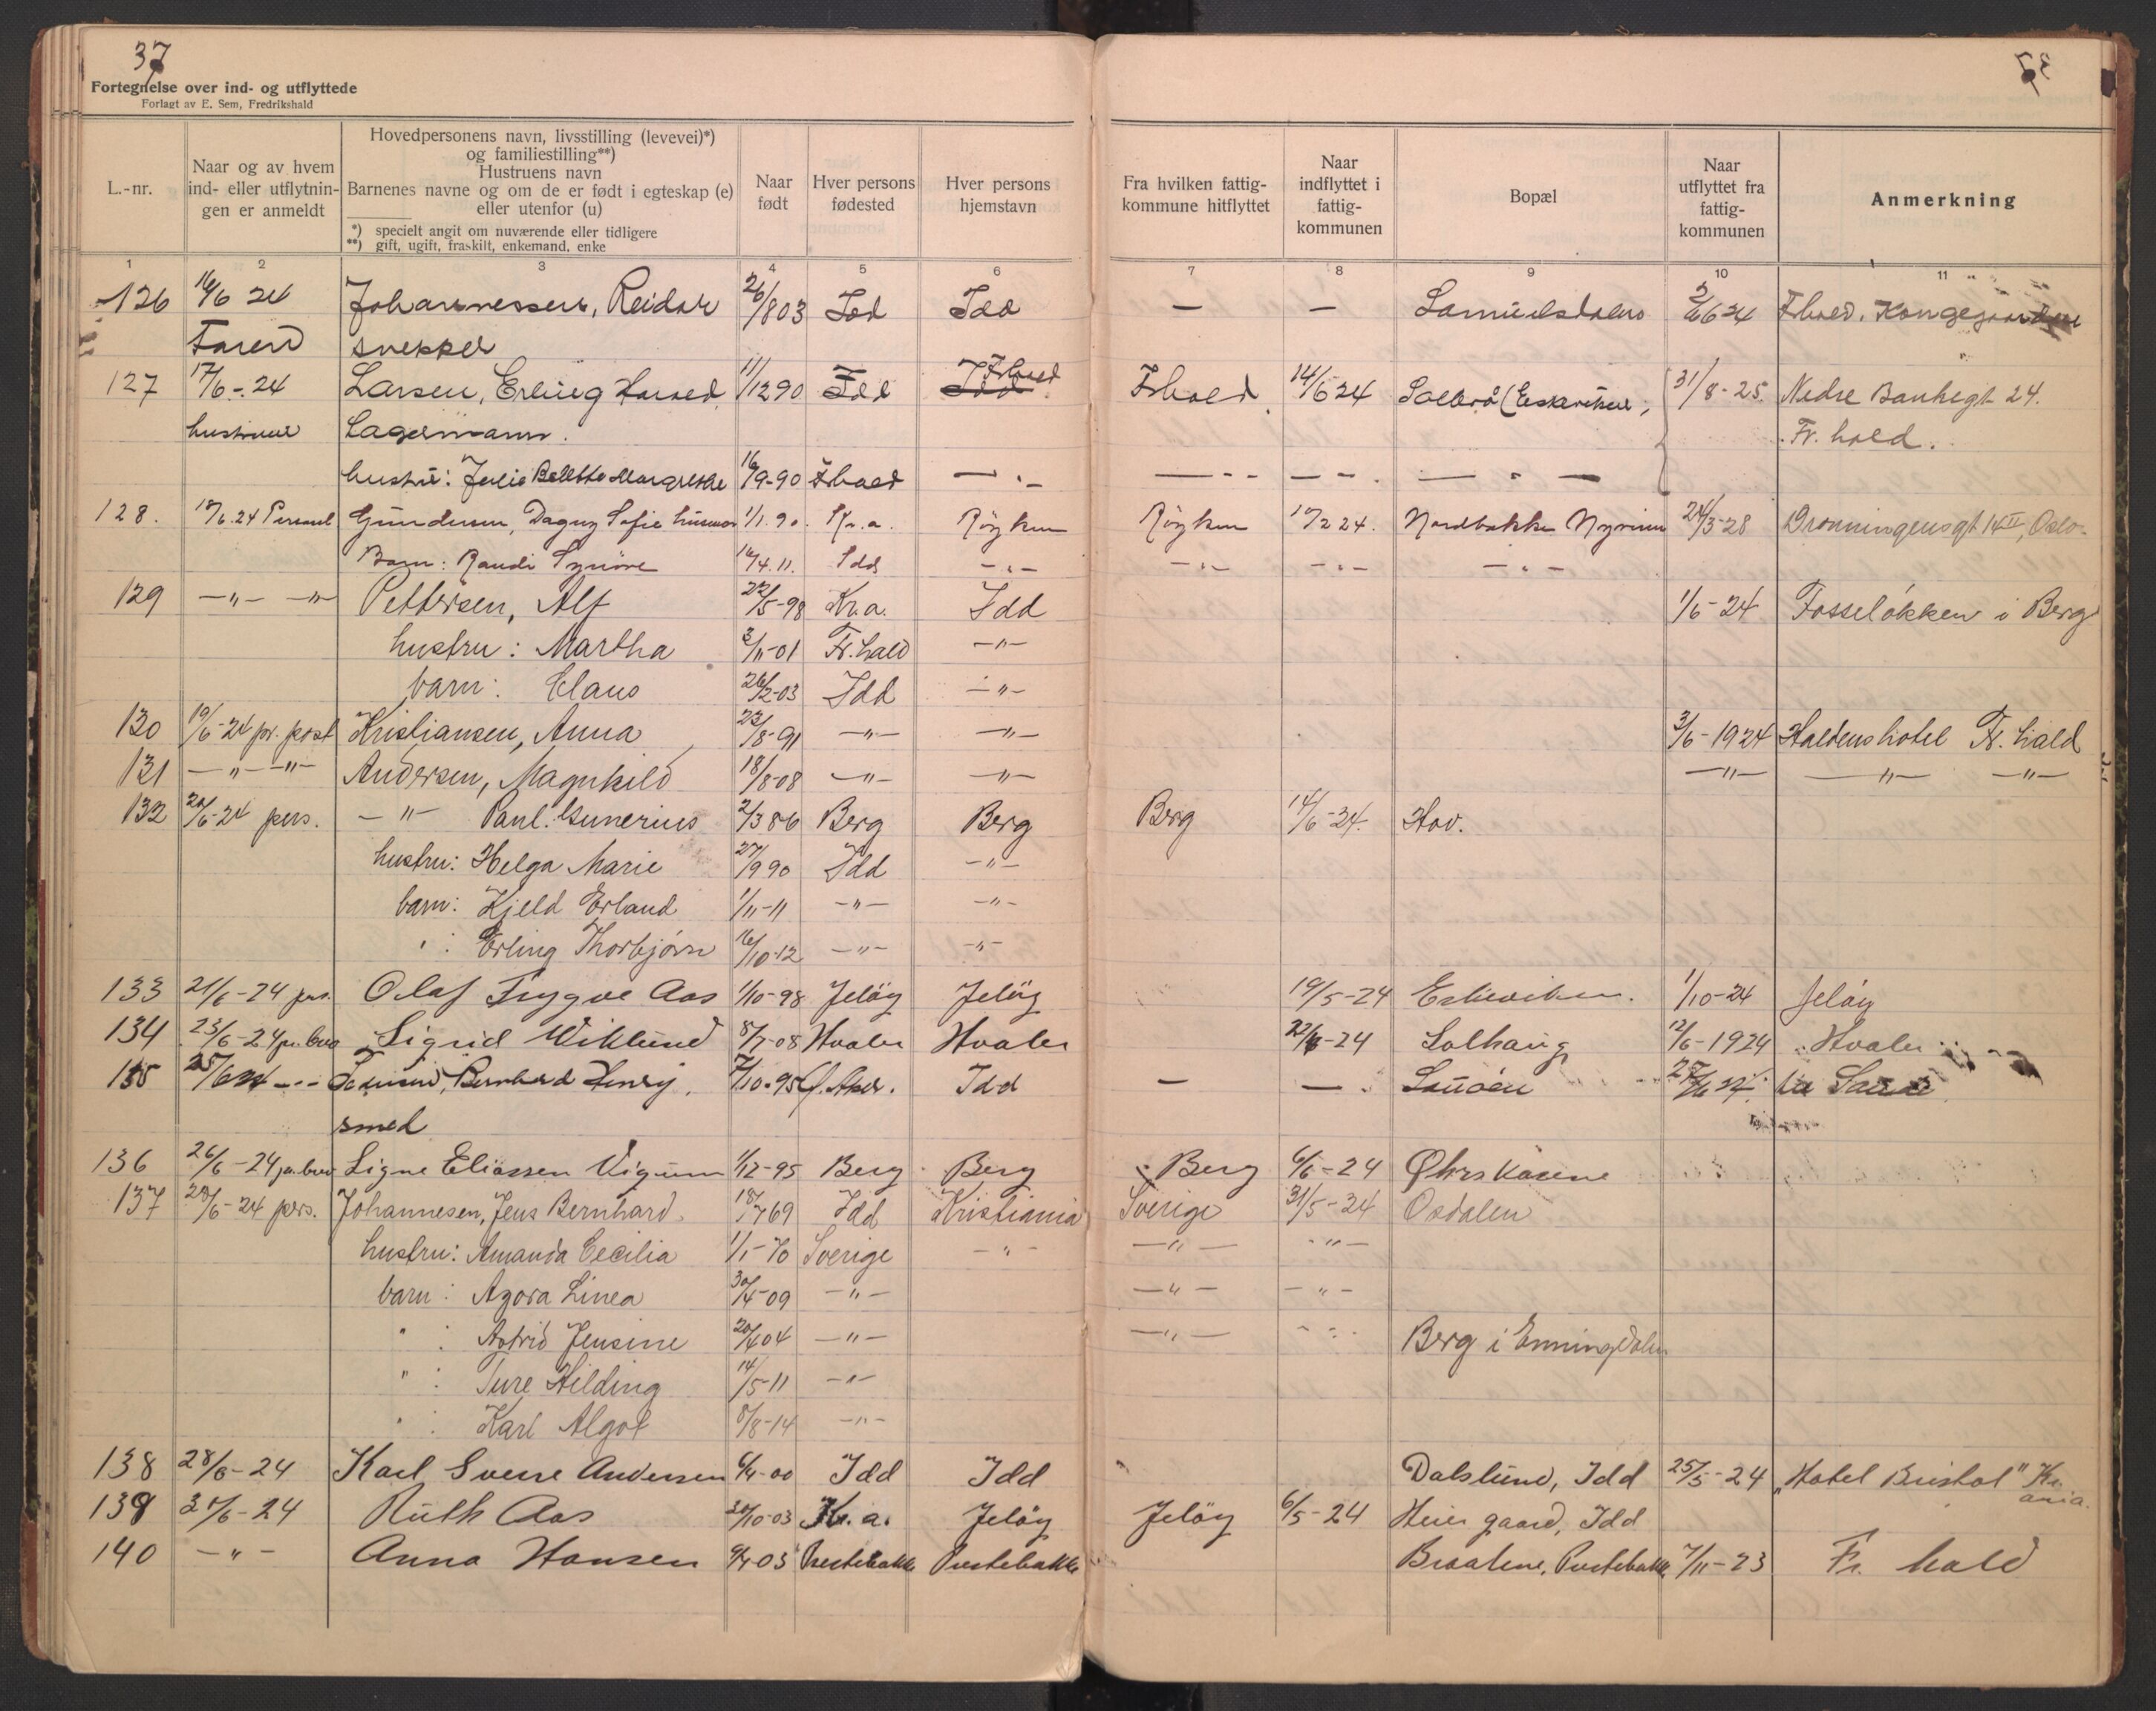 37
37
Fortegnelse over ind- og utflyttede
Forlagt av E. Sem, Fredrikshald
L.-nr. | Naar og av hvem ind- eller utflytnin-gen er anmeldt | Hovedpersonens navn, livsstilling (levevei)*) og familiestilling**) Hustruens navn Barnenes navne og om de er født i egteskap (e) eller utenfor (u) *) specielt angit om nuværende eller tidligere **) gift, ugift, fraskilt, enkemand, enke | Naar født | Hver persons fødested | Hver persons hjemstavn | Fra hvilken fattig-kommune hitflyttet | Naar indflyttet i fattig-kommunen | Bopæl | Naar utflyttet fra fattig-kommunen | Anmerkning
1 2 3 4 5 6 7 8 9 10 11
126 16/6 24 Johannessen, Reidar 26/8 03 Idd Idd — — Samuelsdalen 2/6 24 Fhald. Kongegaardene
Faren snekker
127 17/6 - 24 Larsen, Erling Harald 11/12 90 Idd Idd Fhald Fhald 14/6 24 31/8-25. Nedre Bankegt 24.
hustruen Lagermann. Fr. hald.
hustru: Julie Margrethe 16/9-90 Fhald — " — — " — — " — — " —
128. 17/6.24 Personl Gundersen, Dagny Sofie husmor 1/1.90. Kr.a. Røyken Røyken 24. Nordbakken 24/3-28 Dronningensgt 14 II, Oslo
Barn: Randi Synnøve 16/4.11. Idd — " — — " — — " — — " —
129 — " — — " — Pettersen, Alf 22/5-98 Kr.a. Idd 1/6-24 Fosseløkken i Berg
hustru: Martha 3/11-01 Fr.hald — " —
barn: Claus 26/2-03 Idd — " —
130 19/6-24 pr. post Kristiansen, Anna 23/8-91 — " — — " — 3/6-1924 Haldens hotel Fr. hald
131 — " — — " — Andersen, Magnhild 18/8-08 — " — — " — — " — — " — — " —
132 20/6-24 pers. — " — Paul Gunerius 2/3 86 Berg Berg Berg 14/6-24. Hov.
hustru: Helga Marie 27/9 90 Idd — " —
barn: Kjeld Erland 1/11-11 — " — — " —
" : Erling Thorbjørn 16/10-12 — " — — " —
133 21/6-24 pers. Olaf Trygve Aas 1/10-98 Jeløy Jeløy 19/5-24 Eskeviken. 1/10-24 Jeløy
134 23/6-24 pr. brev Sigrid Wiklund 8/7-08 Hvaler Hvaler 22/4-24 Solhaug 12/6-1924 Hvaler
135 25/6 24 — " — Bernhard Henry. 7/10-95 Idd — —
smed
136 26/6-24 pr. brev Signe Eliassen Vigum 1/12-95 Berg Berg Berg 6/6-24
137 28/6-24 pers. Johannesen, Jens Bernhard. 18/7 69 Idd Kristiania Sverige 31/5-24 Osdalen
hustru: Amanda Cecilia 1/1-70 Sverige — " — — " — — " —
barn: Agora Linea 30/4-09 — " — — " — — " —
" : Astrid Jensine 20/4 04 — " — — " — — " — Berg i Enningdalen
" : Ture Hilding 14/5-11 — " —
" : Karl Algot 8/8-14 — " —
138 28/6-24 Karl Sverre Andersen 6/4-00 Idd Idd Dalslund, Idd 25/5-24 "Hotel Bristol" Kr.ania.
139 30/6-24 Ruth Aas 30/10-03 Kr.a. Jeløy Jeløy 6/5-24 Heier gaard, Idd
140 — " — Anna Hansen 9/4-03 Prestebakke Prestebakke Braatene, Prestebakke 7/11-23 Fr. hald